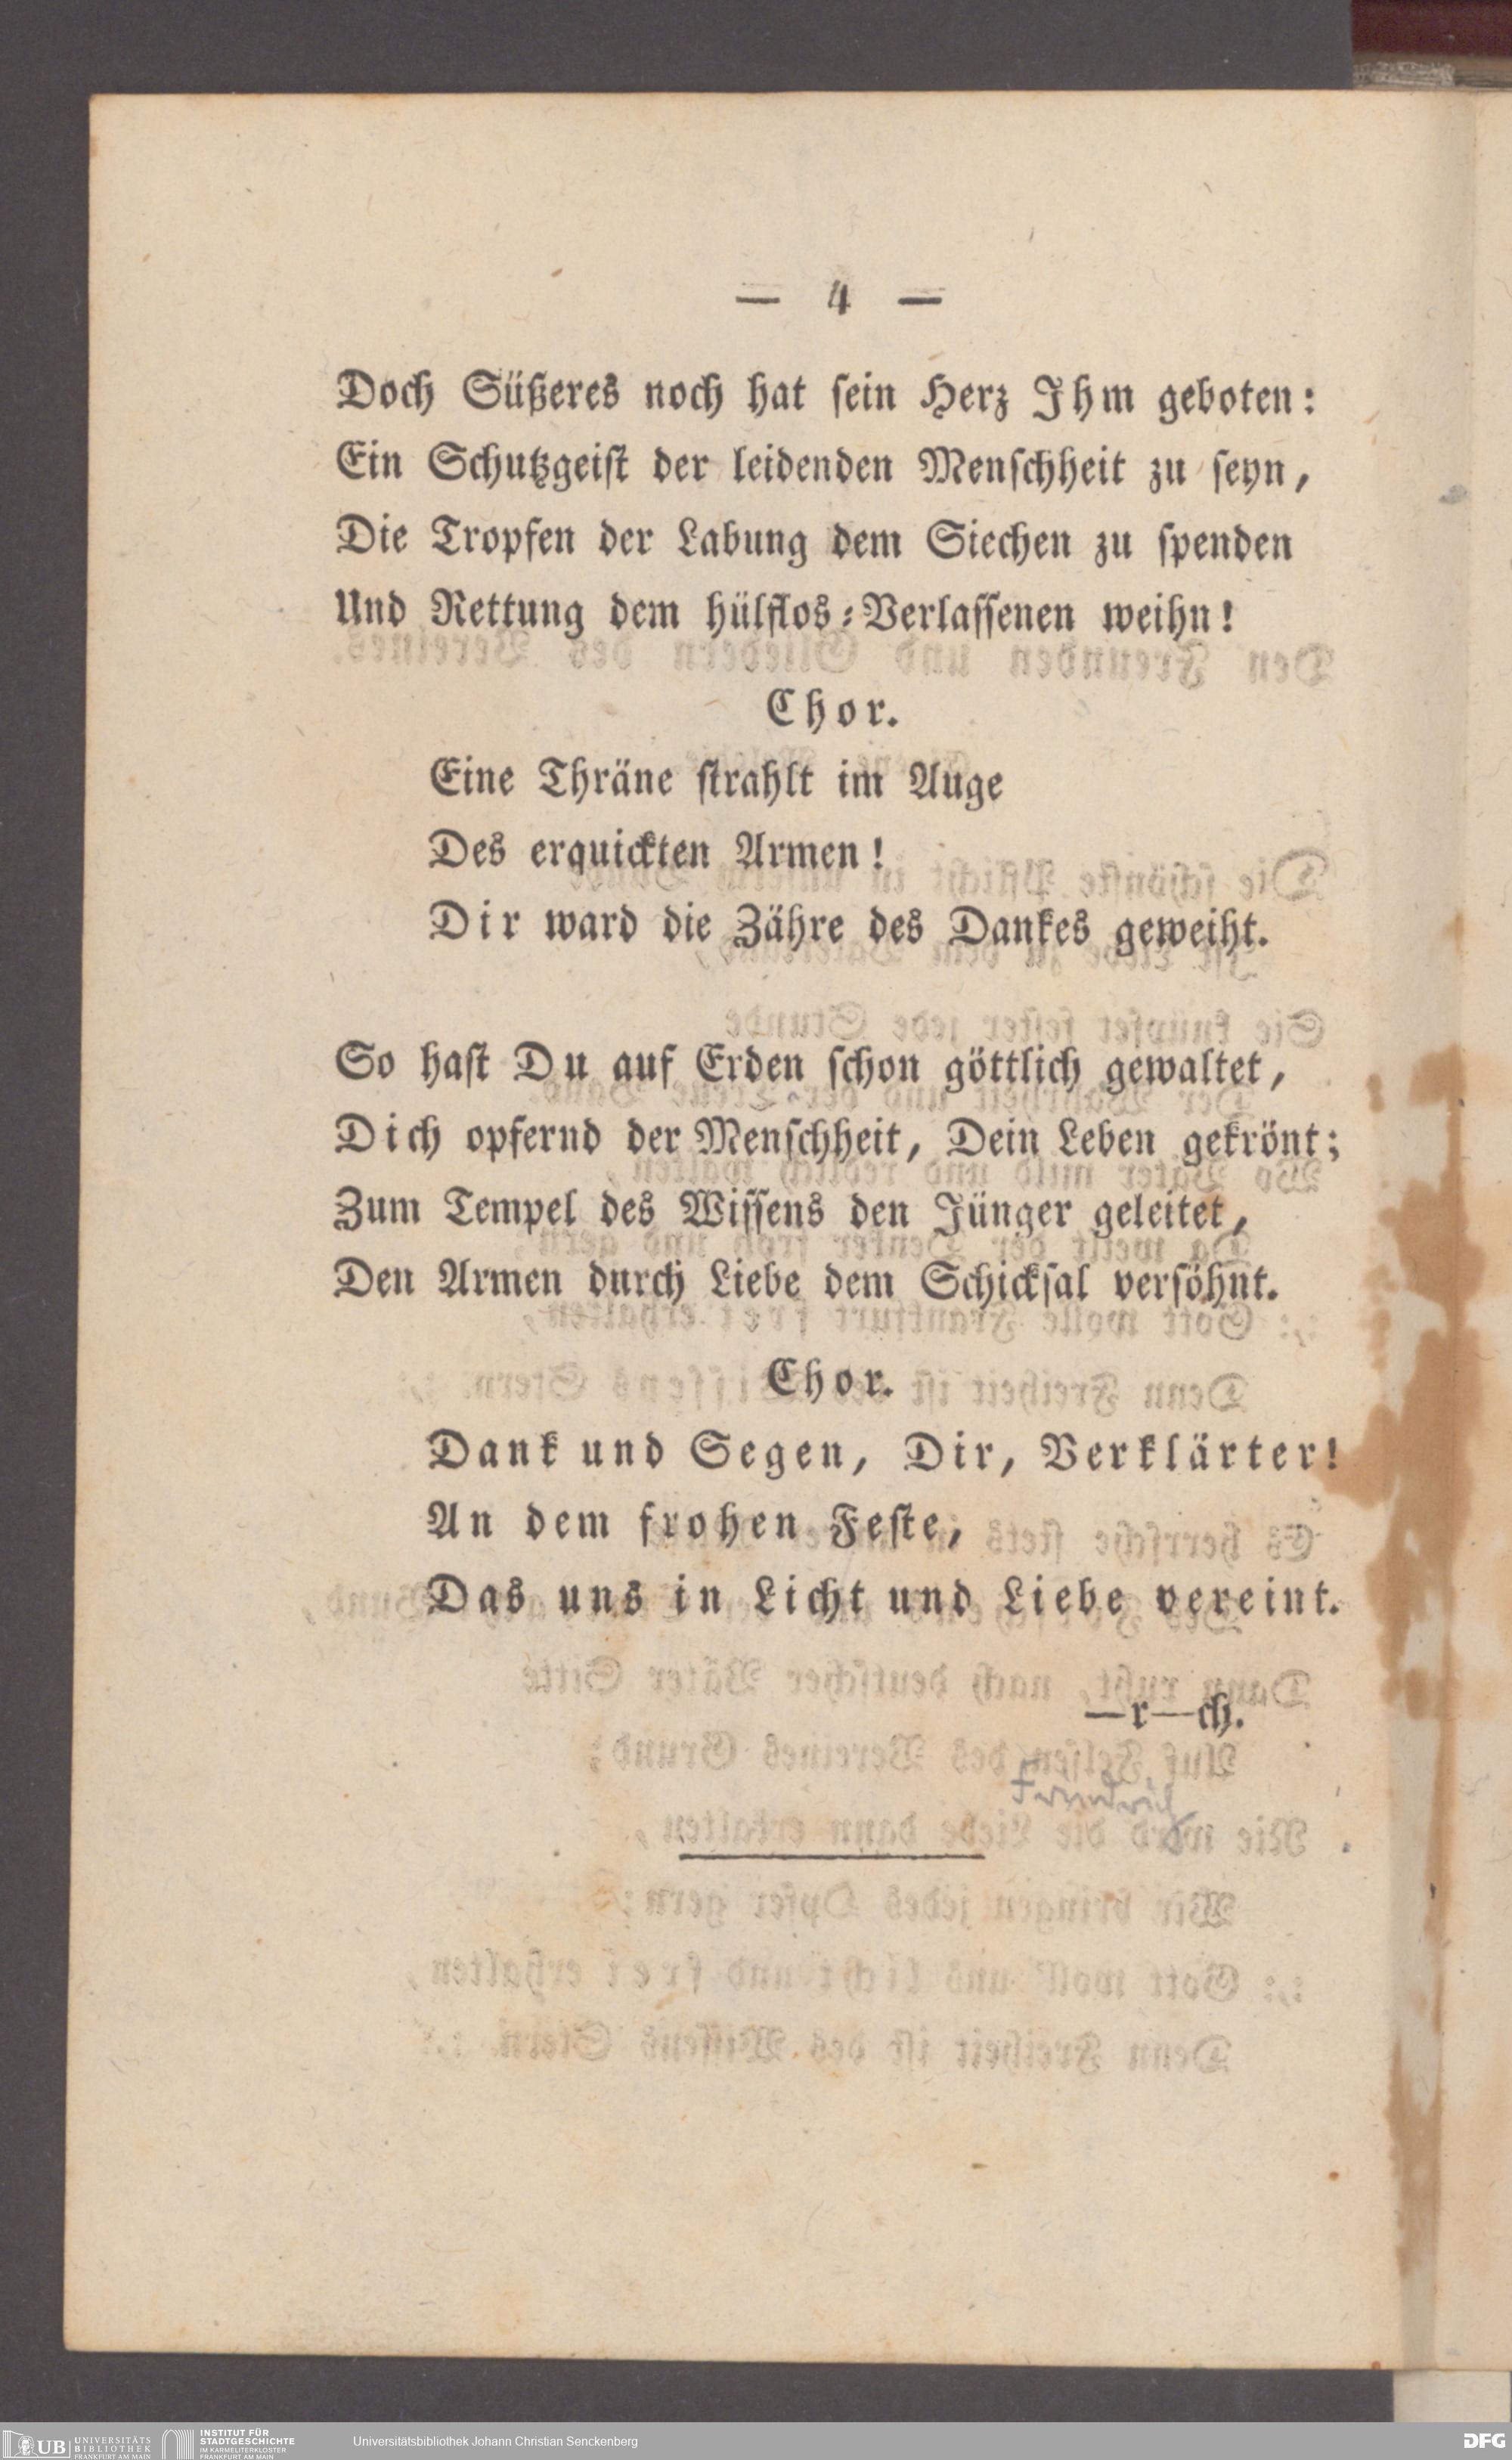 — 4 —
Doch Süßeres noch hat sein Herz Ihm geboten:
Ein Schutzgeist der leidenden Menschheit zu seyn,
Die Tropfen der Labung dem Siechen zu spenden
Und Rettung dem hülflos-Verlassenen weihn!
Chor.
Eine Thräne strahlt im Auge
Des erquickten Armen!
Dir ward die Zähre des Dankes geweiht.
So hast Du auf Erden schon göttlich gewaltet,
Dich opfernd der Menschheit, Dein Leben gekrönt;
Zum Tempel des Wissens den Jünger geleitet,
Den Armen durch Liebe dem Schicksal versöhnt.
Chor.
Dank und Segen, Dir, Verklärter!
An dem frohen Feste,
Das uns in Licht und Liebe vereint.
—r—ch.
UB UNIVERSITÄTS
BIBLIOTHEK
FRANKFURT AM MAIN
INSTITUT FÜR
STADTGESCHICHTE
IM KARMELITERKLOSTER
FRANKFURT AM MAIN
Universitätsbibliothek Johann Christian Senckenberg
DFG